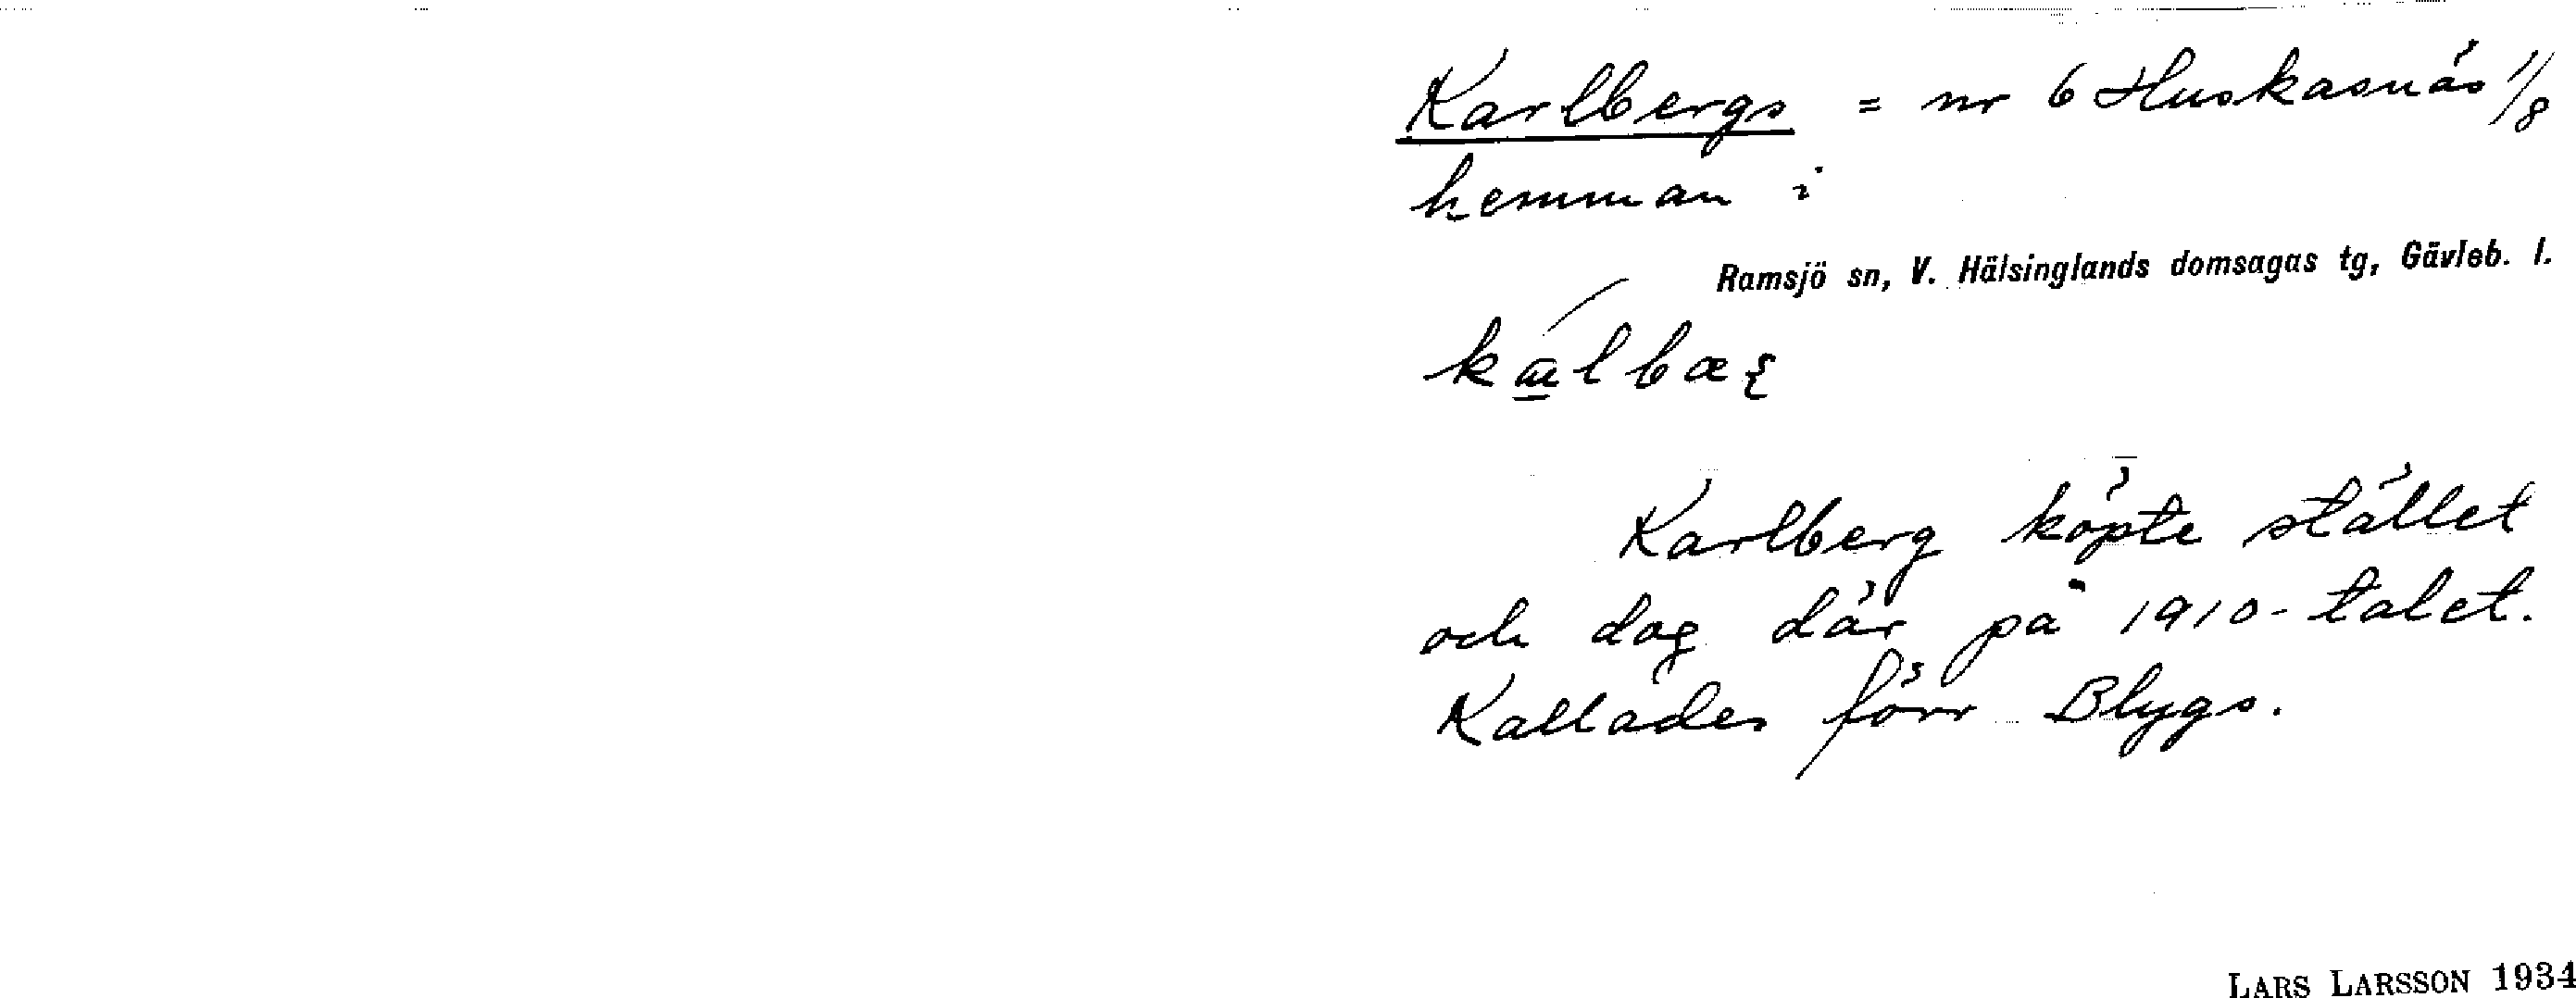 Karlbergs = nr 6 Huskasnäs 1/8
hemman i
Ramsjö sn, V. Hälsinglands domsagas tg, Gävleb. l.
Karlberg köpte stället
och dog där på 1910-talet.
Kallades förr Blygs.
LARS LARSSON 1934